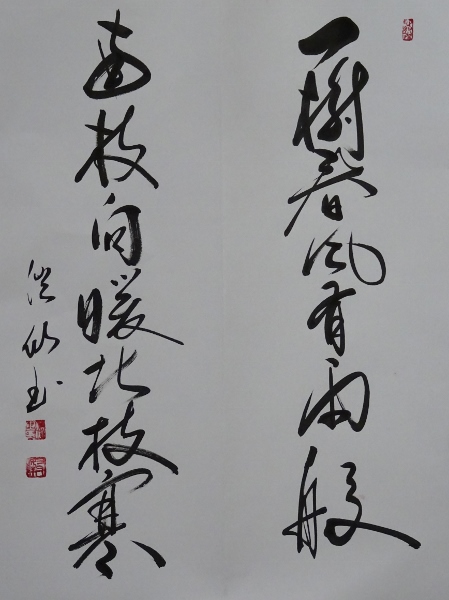 一樹春風有兩般
南枝向暖北枝寒